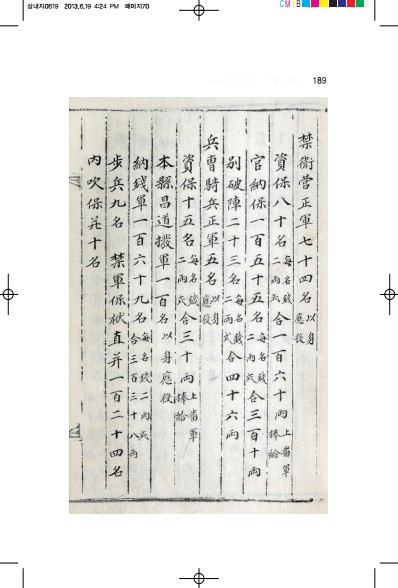 삼내지0619 2013.6.19 4:24 PM 페이지70
CM B
189
禁衛營正軍七十四名 以身應役
資保八十名 每名錢二兩式 合一百六十兩 上當軍捧給
官納保一百五十五名 每名錢二兩式 合三百十兩
別破陣二十三名 每名錢二兩式 合四十六兩
兵曹騎兵正軍五名 以身應役
資保十五名 每名錢二兩式 合三十兩 上當軍捧給
本縣昌道撥軍一百名 以身應役
納錢軍一百六十九名 每名錢二兩式 合三百三十八兩
步兵九名 禁軍保 直并一百二十四名
內吹保并十名